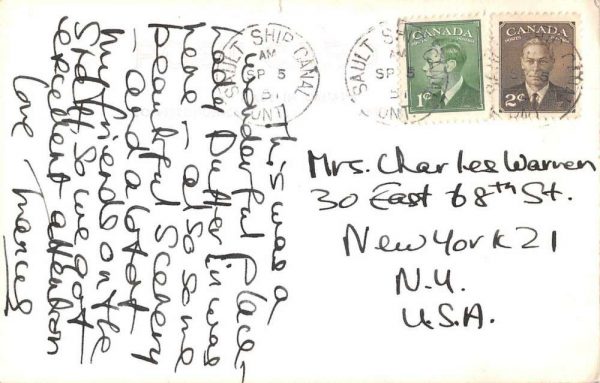 SAULT SHIP CANAL
AM
SP 5
51
ONT.
SAULT SHIP CANAL
AM
SP 5
ONT.
CANADA
1¢
CANADA
POSTES POSTAGE
2¢
This was a
wonderful place –
Lady was
here – also some
beautiful scenery
– and a lot of
my friends on the
staff so we got
excellent attention
love
Mrs. Charles Warren
30 East 68th St.
New York 21
N.Y.
U.S.A.